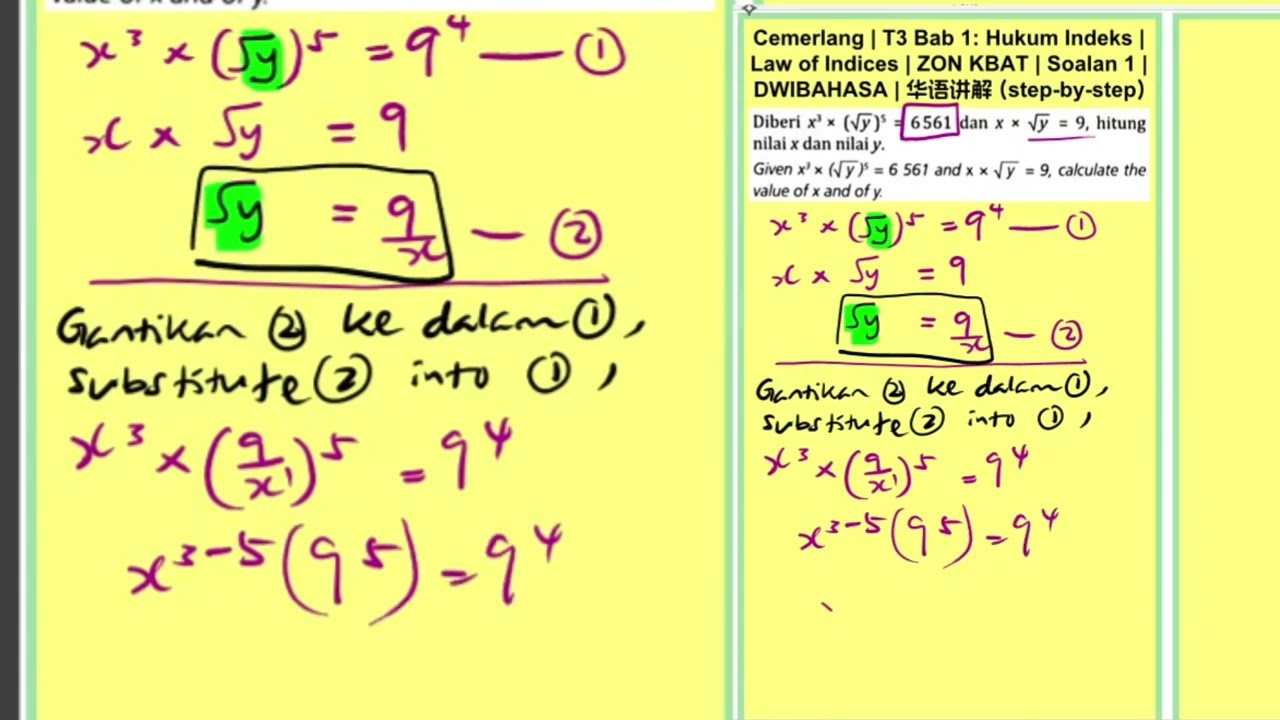 value of x and of y.
x³ × (√y)⁵ = 9⁴ — ①
x × √y = 9
√y = 9/x — ②
Gantikan ② ke dalam ①,
substitute ② into ①,
x³ × (9/x¹)⁵ = 9⁴
x³⁻⁵(9⁵) = 9⁴
Cemerlang | T3 Bab 1: Hukum Indeks |
Law of Indices | ZON KBAT | Soalan 1 |
DWIBAHASA | 华语讲解 (step-by-step)
Diberi x³ × (√y)⁵ = 6 561 dan x × √y = 9, hitung
nilai x dan nilai y.
Given x³ × (√y)⁵ = 6 561 and x × √y = 9, calculate the
value of x and of y.
x³ × (√y)⁵ = 9⁴ — ①
x × √y = 9
√y = 9/x — ②
Gantikan ② ke dalam ①,
substitute ② into ①,
x³ × (9/x¹)⁵ = 9⁴
x³⁻⁵(9⁵) = 9⁴